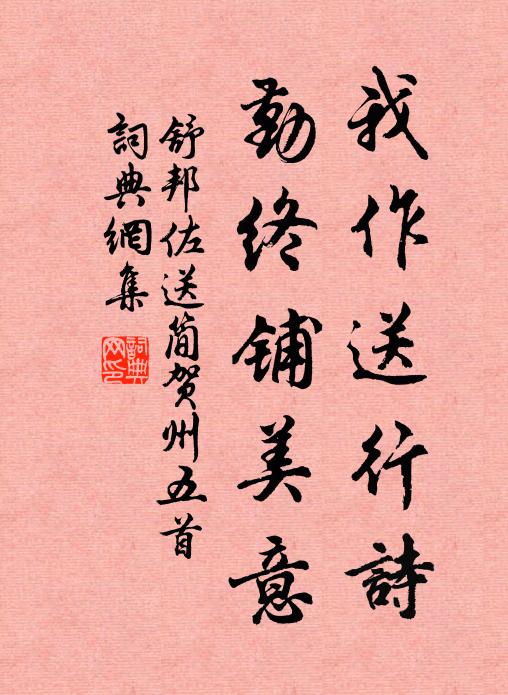 我作送行詩
勤終鋪美意
舒邦佐送簡賀州五首
詞典網集
詞典網印